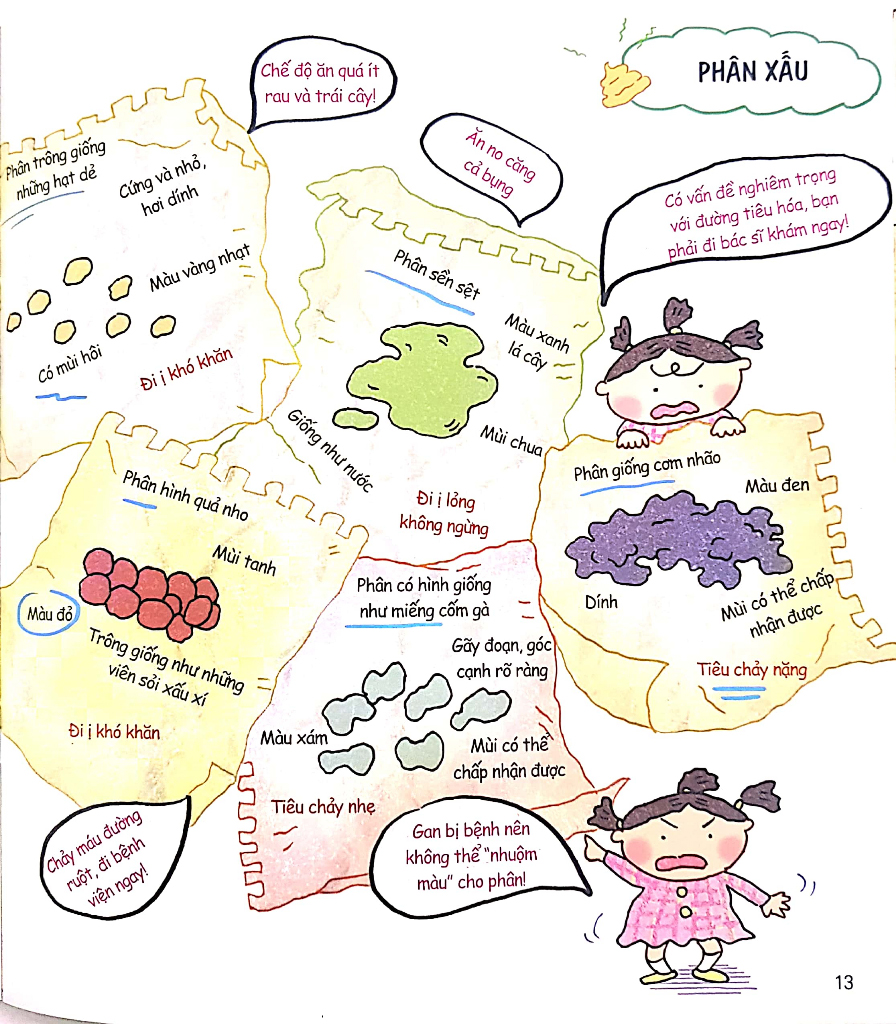 PHÂN XẤU
Chế độ ăn quá ít
rau và trái cây!
Phân trông giống
những hạt dẻ
Cứng và nhỏ,
hơi dính
Màu vàng nhạt
Có mùi hôi
Đi ị khó khăn
Ăn no căng
cả bụng
Phân sền sệt
Màu xanh
lá cây
Giống như nước
Mùi chua
Đi ị lỏng
không ngừng
Có vấn đề nghiêm trọng
với đường tiêu hóa, bạn
phải đi bác sĩ khám ngay!
Phân giống cơm nhão
Màu đen
Dính
Mùi có thể chấp
nhận được
Tiêu chảy nặng
Phân hình quả nho
Mùi tanh
Màu đỏ
Trông giống như những
viên sỏi xấu xí
Đi ị khó khăn
Chảy máu đường
ruột, đi bệnh
viện ngay!
Phân có hình giống
như miếng cốm gà
Gãy đoạn, góc
cạnh rõ ràng
Màu xám
Mùi có thể
chấp nhận được
Tiêu chảy nhẹ
Gan bị bệnh nên
không thể “nhuộm
màu” cho phân!
13